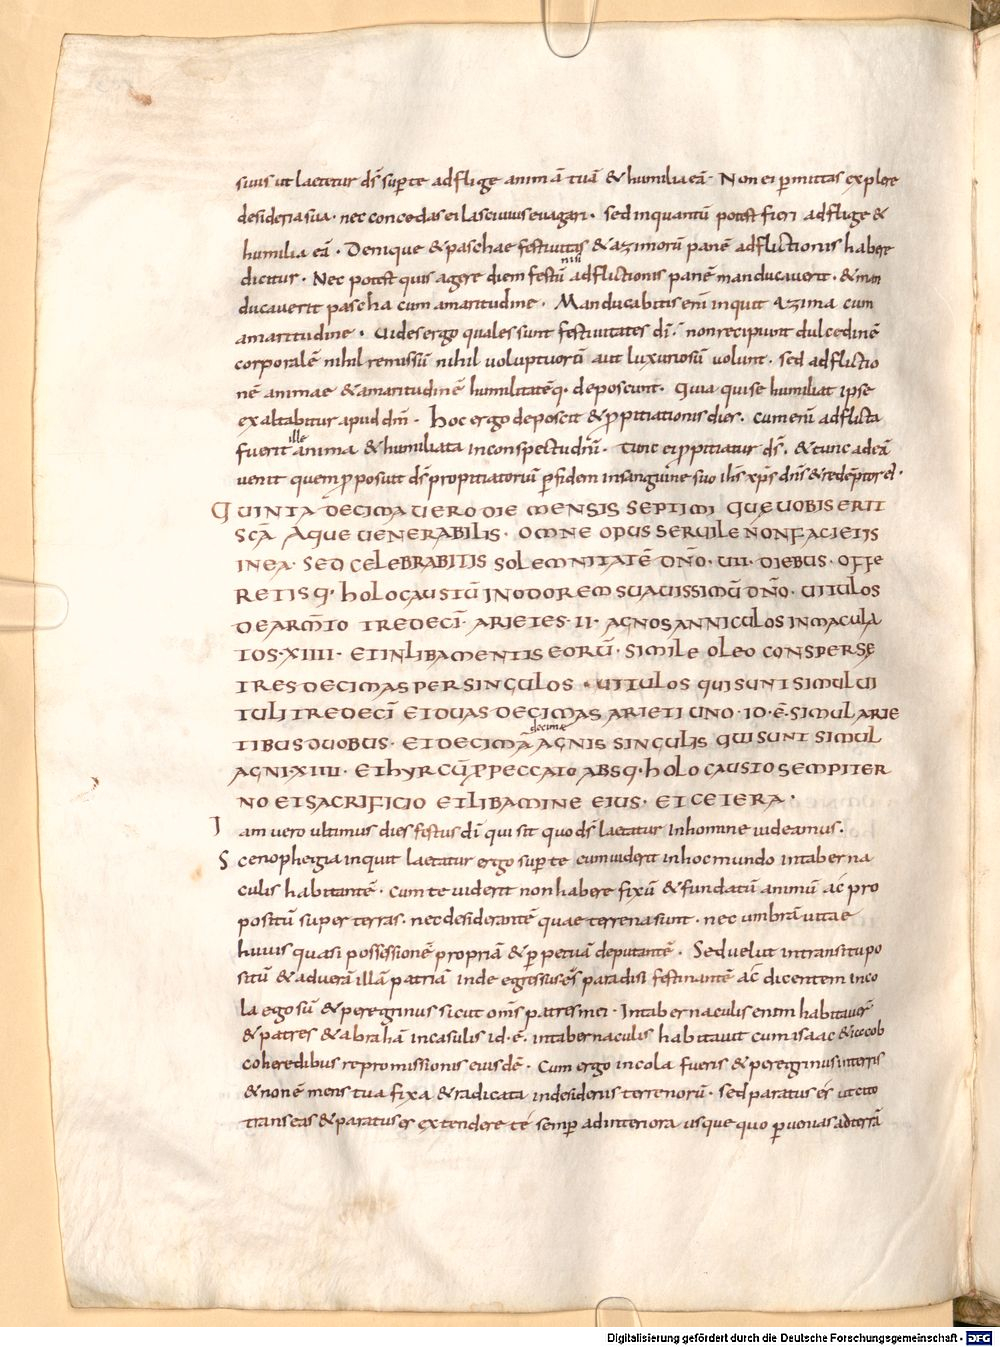 suus ut laetetur d̄s sup te adflige animā tuā & humilia eā· Non ei pmittas explere
desideria sua· nec concedas ei lasciuius euagari· sed inquantū potest fieri adflige &
humilia eā· Denique & paschae festiuitas & azimorū panē adflictionis habere
nisi
dicitur· Nec potest quis agere diem festū adflictionis panē manducauerit· & man
ducauerit pascha cum amaritudine· Manducabitis eni inquit azima cum
amaritudine· Uides ergo quales sunt festiuitates dī· non recipiunt dulcedinē
corporalē nihil remissū nihil uoluptuorū aut luxuriosū uolunt· sed adflictio
nē animae & amaritudinē humilitatēq· deposcunt· Quia qui se humiliat ipse
exaltabitur apud dm̄· hoc ergo deposcit & ppitiationis dies· cum eni adflicta
ille
fuerit anima & humiliata in conspectu dnī· tunc ei ppitiatur d̄s· & tunc ad eā
uenit quem pposuit d̄s propitiatoriū p fidem in sanguine suo ihs xp̄s dn̄s & redēptor
QUINTA DECIMA UERO DIE MENSIS SEPTIMI QUĘ UOBIS ERIT
SCĀ AQUE UENERABILIS· OMNE OPUS SERUILE NON FACIETIS
IN EA· SED CELEBRABITIS SOLEMNITATĒ DNŌ· UII· DIEBUS· OFFE
RETISQ· HOLOCAUSTŪ IN ODOREM SUAUISSIMŪ DNŌ· UITULOS
DE ARM̄TO TREDECĪ· ARIETES· II· AGNOS ANNICULOS INMACULA
TOS· XIIII· ET IN LIBAMENTIS EORŪ· SIMILE OLEO CONSPERSĘ
TRES DECIMAS PER SINGULOS· UITULOS QUI SUNT SIMUL UI
TULI TREDECĪ ET DUAS DECIMAS ARIETI UNO· ID· Ē· SIMUL ARIE
decimę
TIBUS DUOBUS· ET DECIMĀ AGNIS SINGULIS QUI SUNT SIMUL
AGNI· XIIII· ET HYRCŪ P PECCATO ABSQ· HOLOCAUSTO SEMPITER
NO ET SACRIFICIO ET LIBAMINE EIUS· ET CETERA·
Iam uero ultimus dies festus dī qui sit quo d̄s laetatur in homine uideamus·
Scenophegia inquit laetatur ergo sup te cum uiderit in hoc mundo in taberna
culis habitantē· cum te uiderit non habere fixū & fundatū animū ac pro
positū super terras· nec desiderantē quae terrena sunt· nec umbrā uitae
huius quasi possessionē propriā & ppetuā deputantē· Sed uelut in transitu po
sitū & ad uerā illā patriā inde egressus es paradisi festinantē ac dicentem inco
la ego sū & peregrinus sicut om̄s patres mei· In tabernaculis enim habitauer̄
& patres & abrahā in casulis id· ē· in tabernaculis habitauit cum isaac & iacob
coheredibus repromissionis eiusdē· Cum ergo incola fueris & peregrinus in terris
& non ē mens tua fixa & radicata in desideriis terrenorū· sed paratus es ut cito
transeas & paratus es extendere te semp ad interiora usque quo puenias ad terrā